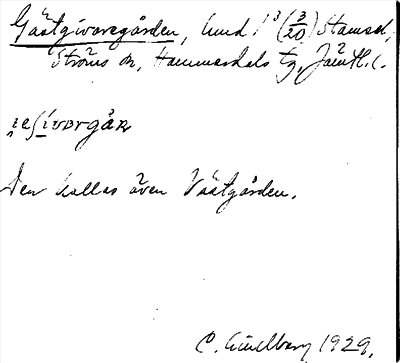 Gästgivaregården, lund 1³ (3/20) Stamsel,
Ströms sn, Hammerdals tg, Jämtl. l.
jeʃívərgår
Den kallas även Västgården.
C. Lindberg 1929.